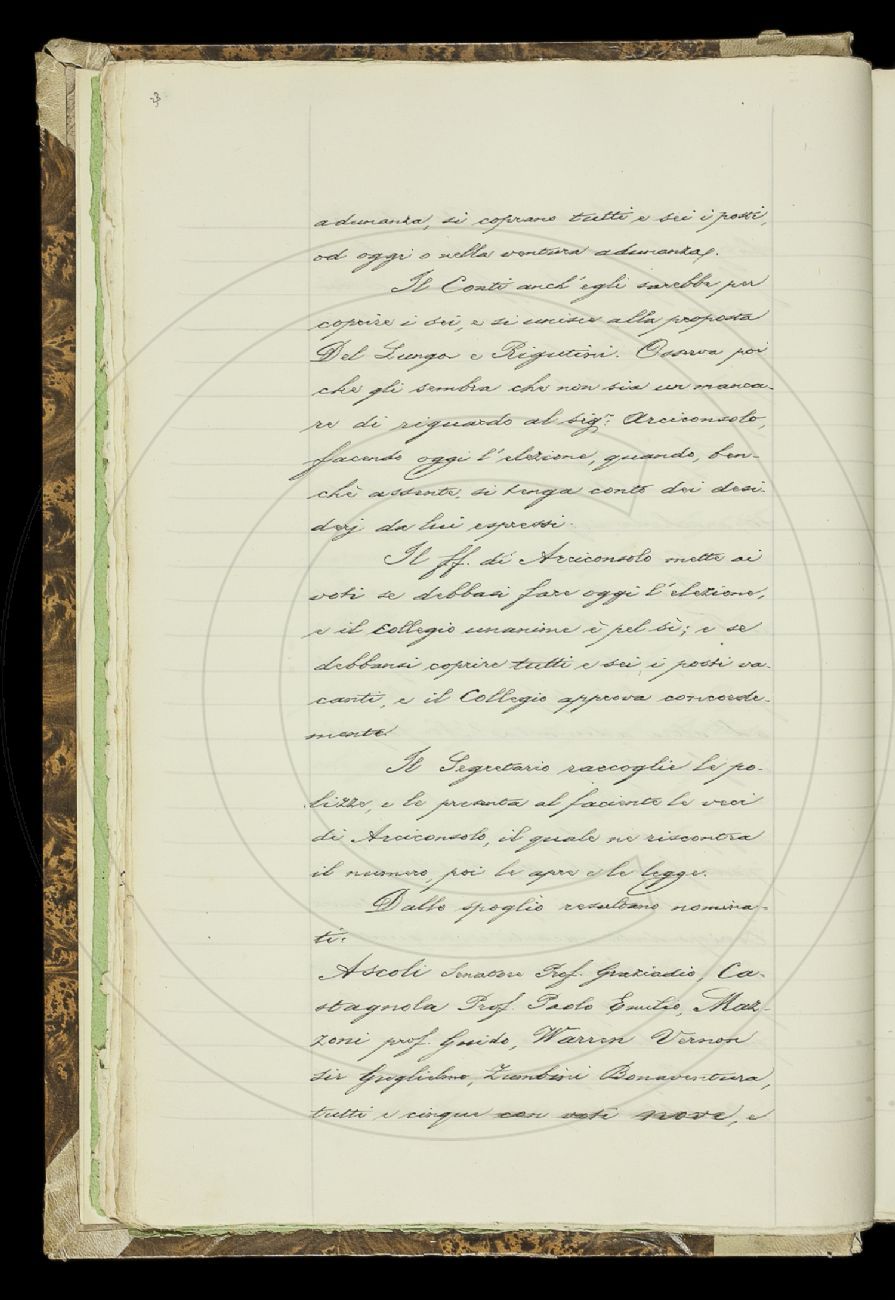 adunanza, si coprano tutti e sei i posti,
od oggi o nella ventura adunanza.
Il Conti anch'egli sarebbe per
coprire i sei, e si unisce alla proposta
Del Lungo e Rigutini. Osserva poi
che gli sembra che non sia un manca-
re di riguardo al sigr. Arciconsolo,
facendo oggi l'elezione, quando, ben-
chè assente, si tenga conto dei desi-
derj da lui espressi.
Il ff. di Arciconsolo mette ai
voti se debbasi fare oggi l'elezione,
e il Collegio unanime è pel sì; e se
debbansi coprire tutti e sei i posti va-
canti, e il Collegio approva concorde-
mente.
Il Segretario raccoglie le po-
lizze, e le presenta al facente le veci
di Arciconsolo, il quale ne riscontra
il numero, poi le apre e le legge.
Dallo spoglio resultano nomina-
ti:
Ascoli Senatore Prof. Graziadio, Ca-
stagnola Prof. Paolo Emilio, Maz-
zoni prof. Guido, Warren Vernon
sir Guglielmo, Zumbini Bonaventura,
tutti e cinque con voti nove, e